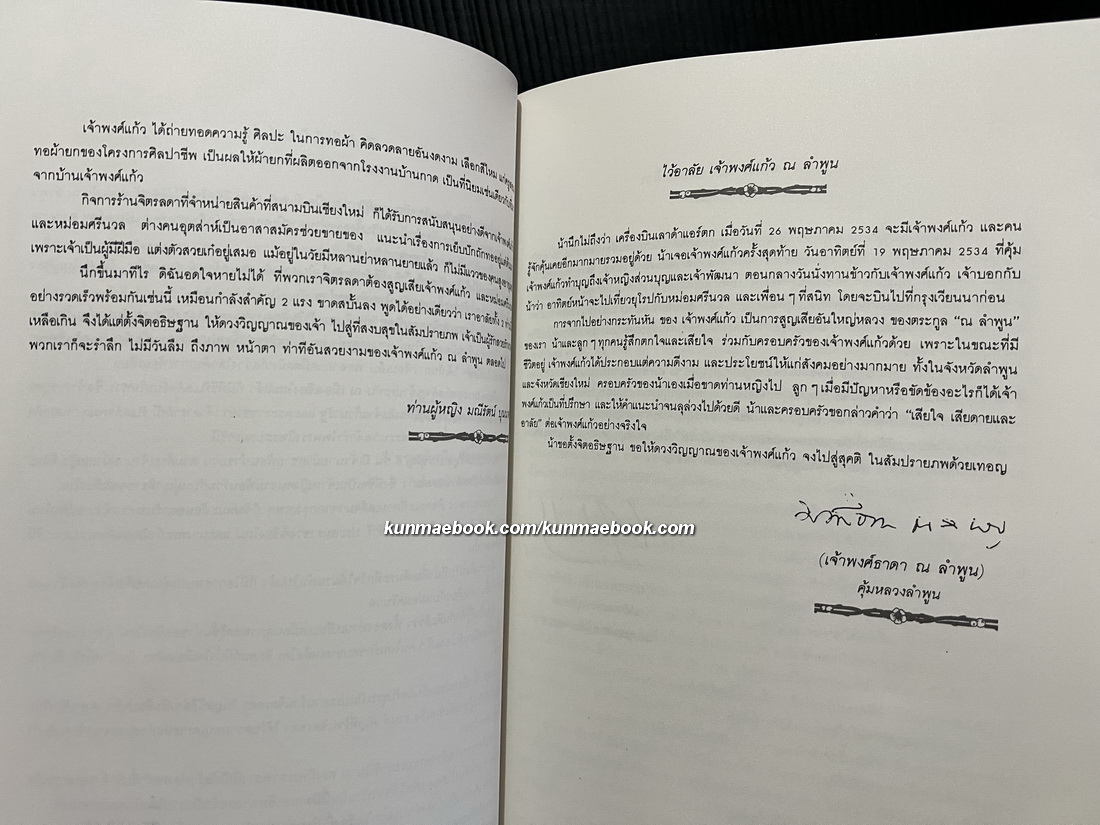 เจ้าพงศ์แก้ว ได้ถ่ายทอดความรู้ ศิลปะ ในการทอผ้า คิดลวดลายอันงดงาม เลือกสีไหม
ทอผ้ายกของโครงการศิลปาชีพ เป็นผลให้ผ้ายกที่ผลิตออกจากโรงงานบ้านกาด เป็นที่นิยมเช่นเดียวกับ
จากบ้านเจ้าพงศ์แก้ว
กิจการร้านจิตรลดาที่จำหน่ายสินค้าที่สนามบินเชียงใหม่ ก็ได้รับการสนับสนุนอย่างดีจากเจ้าพงศ์
และหม่อมศรีนวล ต่างคนอุตส่าห์เป็นอาสาสมัครช่วยขายของ แนะนำเรื่องการเย็บปักถักทออยู่
เพราะเจ้าเป็นผู้มีฝีมือ แต่งตัวสวยเก๋อยู่เสมอ แม้อยู่ในวัยมีหลานย่าหลานยายแล้ว ก็ไม่มีแววของคน
นึกขึ้นมาทีไร ดิฉันอดใจหายไม่ได้ ที่พวกเราจิตรลดาต้องสูญเสียเจ้าพงศ์แก้ว และหม่อม
อย่างรวดเร็วพร้อมกันเช่นนี้ เหมือนกำลังสำคัญ 2 แรง ขาดสบั้นลง พูดได้อย่างเดียวว่า เราอาลัย
เหลือเกิน จึงได้แต่ตั้งจิตอธิษฐาน ให้ดวงวิญญาณของเจ้า ไปสู่ที่สงบสุขในสัมปรายภพ เจ้าเป็นผู้
พวกเราก็จะรำลึก ไม่มีวันลืม ถึงภาพ หน้าตา ท่าทีอันสวยงามของเจ้าพงศ์แก้ว ณ ลำพูน ตลอดไป
ท่านผู้หญิง มณีรัตน์
ไว้อาลัย เจ้าพงศ์แก้ว ณ ลำพูน
น้านึกไม่ถึงว่า เครื่องบินเลาด้าแอร์ตก เมื่อวันที่ 26 พฤษภาคม 2534 จะมีเจ้าพงศ์แก้ว และคน
รู้จักคุ้นเคยอีกมากมายรวมอยู่ด้วย น้าเจอเจ้าพงศ์แก้วครั้งสุดท้าย วันอาทิตย์ที่ 19 พฤษภาคม 2534 ที่คุ้ม
เจ้าพงศ์แก้วทำบุญถึงเจ้าหญิงส่วนบุญและเจ้าพัฒนา ตอนกลางวันนั่งทานข้าวกับเจ้าพงศ์แก้ว เจ้าบอกกับ
น้าว่า อาทิตย์หน้าจะไปเที่ยวยุโรปกับหม่อมศรีนวล และเพื่อน ๆ ที่สนิท โดยจะบินไปที่กรุงเวียนนาก่อน
การจากไปอย่างกระทันหัน ของ เจ้าพงศ์แก้ว เป็นการสูญเสียอันใหญ่หลวง ของตระกูล “ณ ลำพูน”
ของเรา น้าและลูก ๆ ทุกคนรู้สึกตกใจและเสียใจ ร่วมกับครอบครัวของเจ้าพงศ์แก้วด้วย เพราะในขณะที่มี
ชีวิตอยู่ เจ้าพงศ์แก้วได้ประกอบแต่ความดีงาม และประโยชน์ให้แก่สังคมอย่างมากมาย ทั้งในจังหวัดลำพูน
และจังหวัดเชียงใหม่ ครอบครัวของน้าเองเมื่อขาดท่านหญิงไป ลูก ๆ เมื่อมีปัญหาหรือขัดข้องอะไรก็ได้เจ้า
พงศ์แก้วเป็นที่ปรึกษา และให้คำแนะนำจนลุล่วงไปด้วยดี น้าและครอบครัวขอกล่าวคำว่า “เสียใจ เสียดายและ
อาลัย” ต่อเจ้าพงศ์แก้วอย่างจริงใจ
น้าขอตั้งจิตอธิษฐาน ขอให้ดวงวิญญาณของเจ้าพงศ์แก้ว จงไปสู่สุคติ ในสัมปรายภพด้วยเทอญ
kunmaebook.com/kunmaebook.com
(เจ้าพงศ์ธาดา ณ ลำพูน)
คุ้มหลวงลำพูน